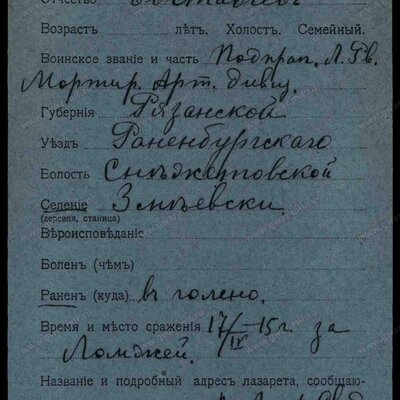 Отчество
Возрастъ лѣтъ. Холостъ. Семейный.
Воинское званіе и часть Подпрап. Л. Гв.
Мортир. Арт. Дивиз.
Губернія Рязанской
Уѣздъ Раненбургскаго
Волость Снѣжетовской
Селеніе Змѣевски
(деревня, станица)
Вѣроисповѣданіе
Боленъ (чѣмъ)
Раненъ (куда) въ голено,
Время и мѣсто сраженія 17/IV-15 г. за
Ломжей.
Названіе и подробный адресъ лазарета, сообщаю-